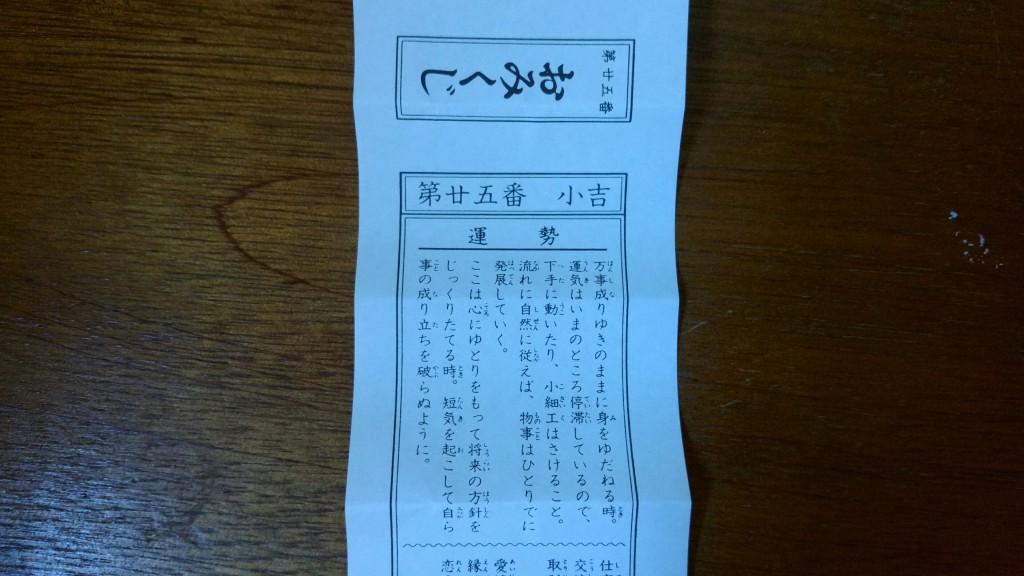 第廿五番
おみくじ
第廿五番 小吉
運勢
万事成りゆきのままに身をゆだねる時。
運気はいまのところ停滞しているので、
下手に動いたり、小細工はさけること。
流れに自然に従えば、物事はひとりでに
発展していく。
ここは心にゆとりをもって将来の方針を
じっくりたてる時。短気を起こして自ら
事の成り立ちを破らぬように。
交
取
愛
縁
恋